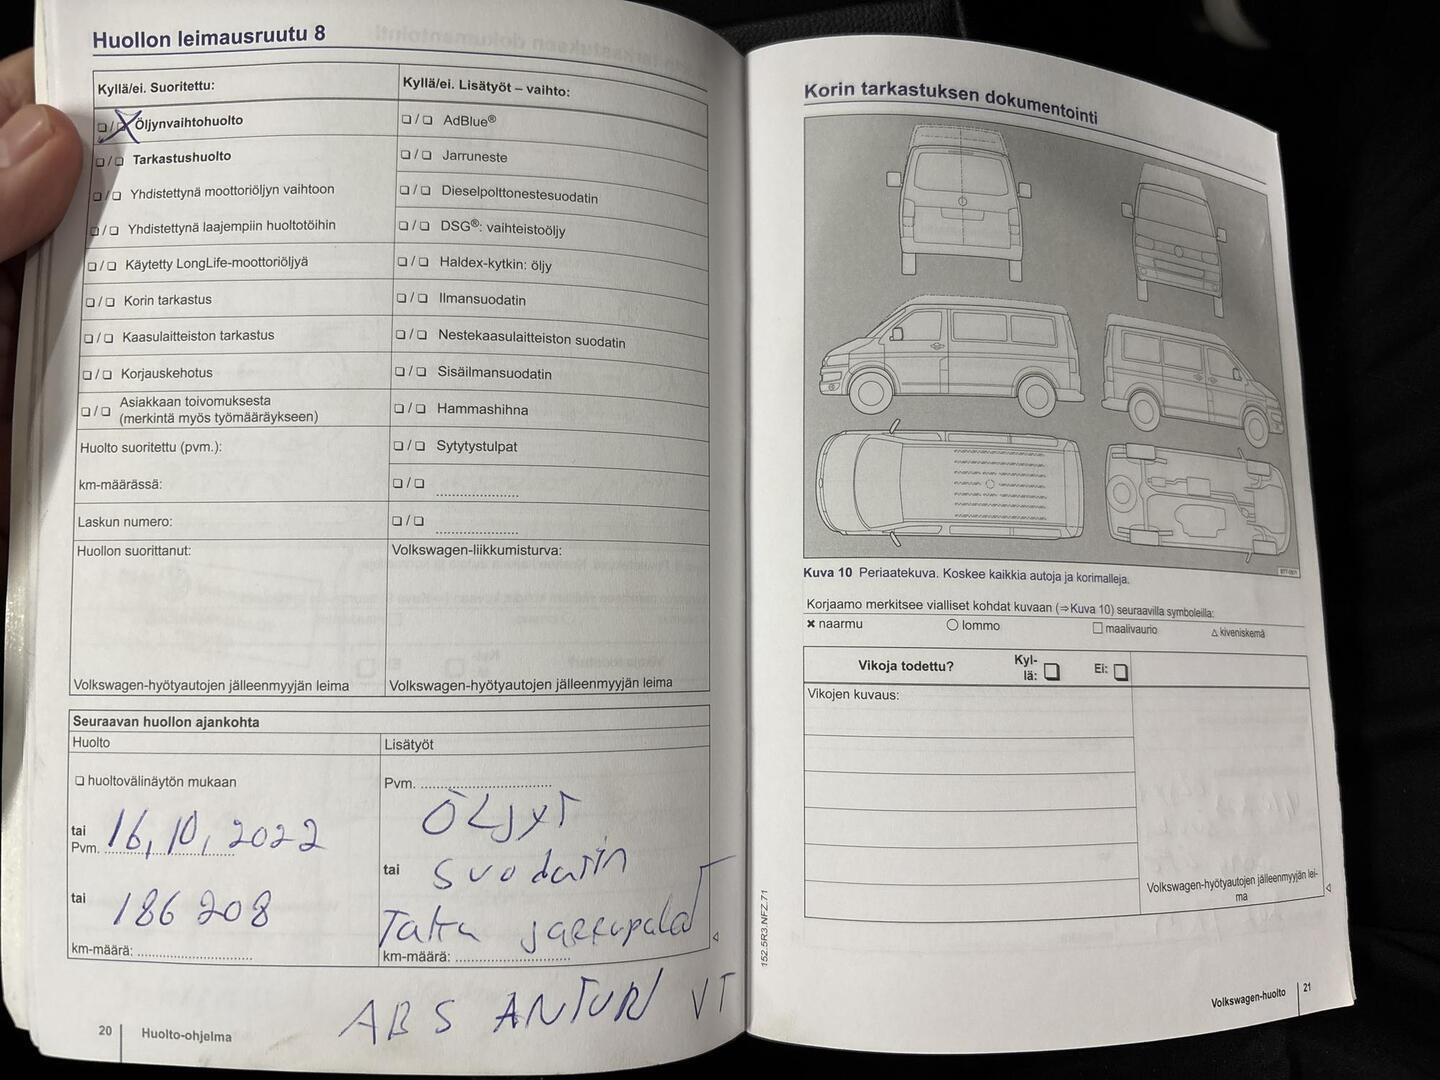 Huollon leimausruutu 8
Kyllä/ei. Suoritettu:
❏ / ❏ Öljynvaihtohuolto
❏ / ❏ Tarkastushuolto
❏ / ❏ Yhdistettynä moottoriöljyn vaihtoon
❏ / ❏ Yhdistettynä laajempiin huoltotöihin
❏ / ❏ Käytetty LongLife-moottoriöljyä
❏ / ❏ Korin tarkastus
❏ / ❏ Kaasulaitteiston tarkastus
❏ / ❏ Korjauskehotus
❏ / ❏ Asiakkaan toivomuksesta
(merkintä myös työmääräykseen)
Huolto suoritettu (pvm.):
km-määrässä:
Laskun numero:
Huollon suorittanut:
Volkswagen-hyötyautojen jälleenmyyjän leima
Kyllä/ei. Lisätyöt – vaihto:
❏ / ❏ AdBlue®
❏ / ❏ Jarruneste
❏ / ❏ Dieselpolttonestesuodatin
❏ / ❏ DSG®: vaihteistoöljy
❏ / ❏ Haldex-kytkin: öljy
❏ / ❏ Ilmansuodatin
❏ / ❏ Nestekaasulaitteiston suodatin
❏ / ❏ Sisäilmansuodatin
❏ / ❏ Hammashihna
❏ / ❏ Sytytystulpat
❏ / ❏ ....................
❏ / ❏ ....................
Volkswagen-liikkumisturva:
Volkswagen-hyötyautojen jälleenmyyjän leima
Seuraavan huollon ajankohta
Huolto
❏ huoltovälinäytön mukaan
tai
Pvm. 16,10,2022
tai
186 208
km-määrä: ....................
Lisätyöt
Pvm. ....................
ÖLJYT
tai suodatin
Taka jarrupalat
km-määrä: ....................
ABS ANTURI VT
20 Huolto-ohjelma
Korin tarkastuksen dokumentointi
B7T-0571
Kuva 10 Periaatekuva. Koskee kaikkia autoja ja korimalleja.
Korjaamo merkitsee vialliset kohdat kuvaan (⇒Kuva 10) seuraavilla symboleilla:
✖ naarmu ○ lommo □ maalivaurio △ kiveniskemä
Vikoja todettu? Kyl-
lä: ❏ Ei: ❏
Vikojen kuvaus:
Volkswagen-hyötyautojen jälleenmyyjän lei-
ma
152.5R3.NFZ.71
Volkswagen-huolto 21